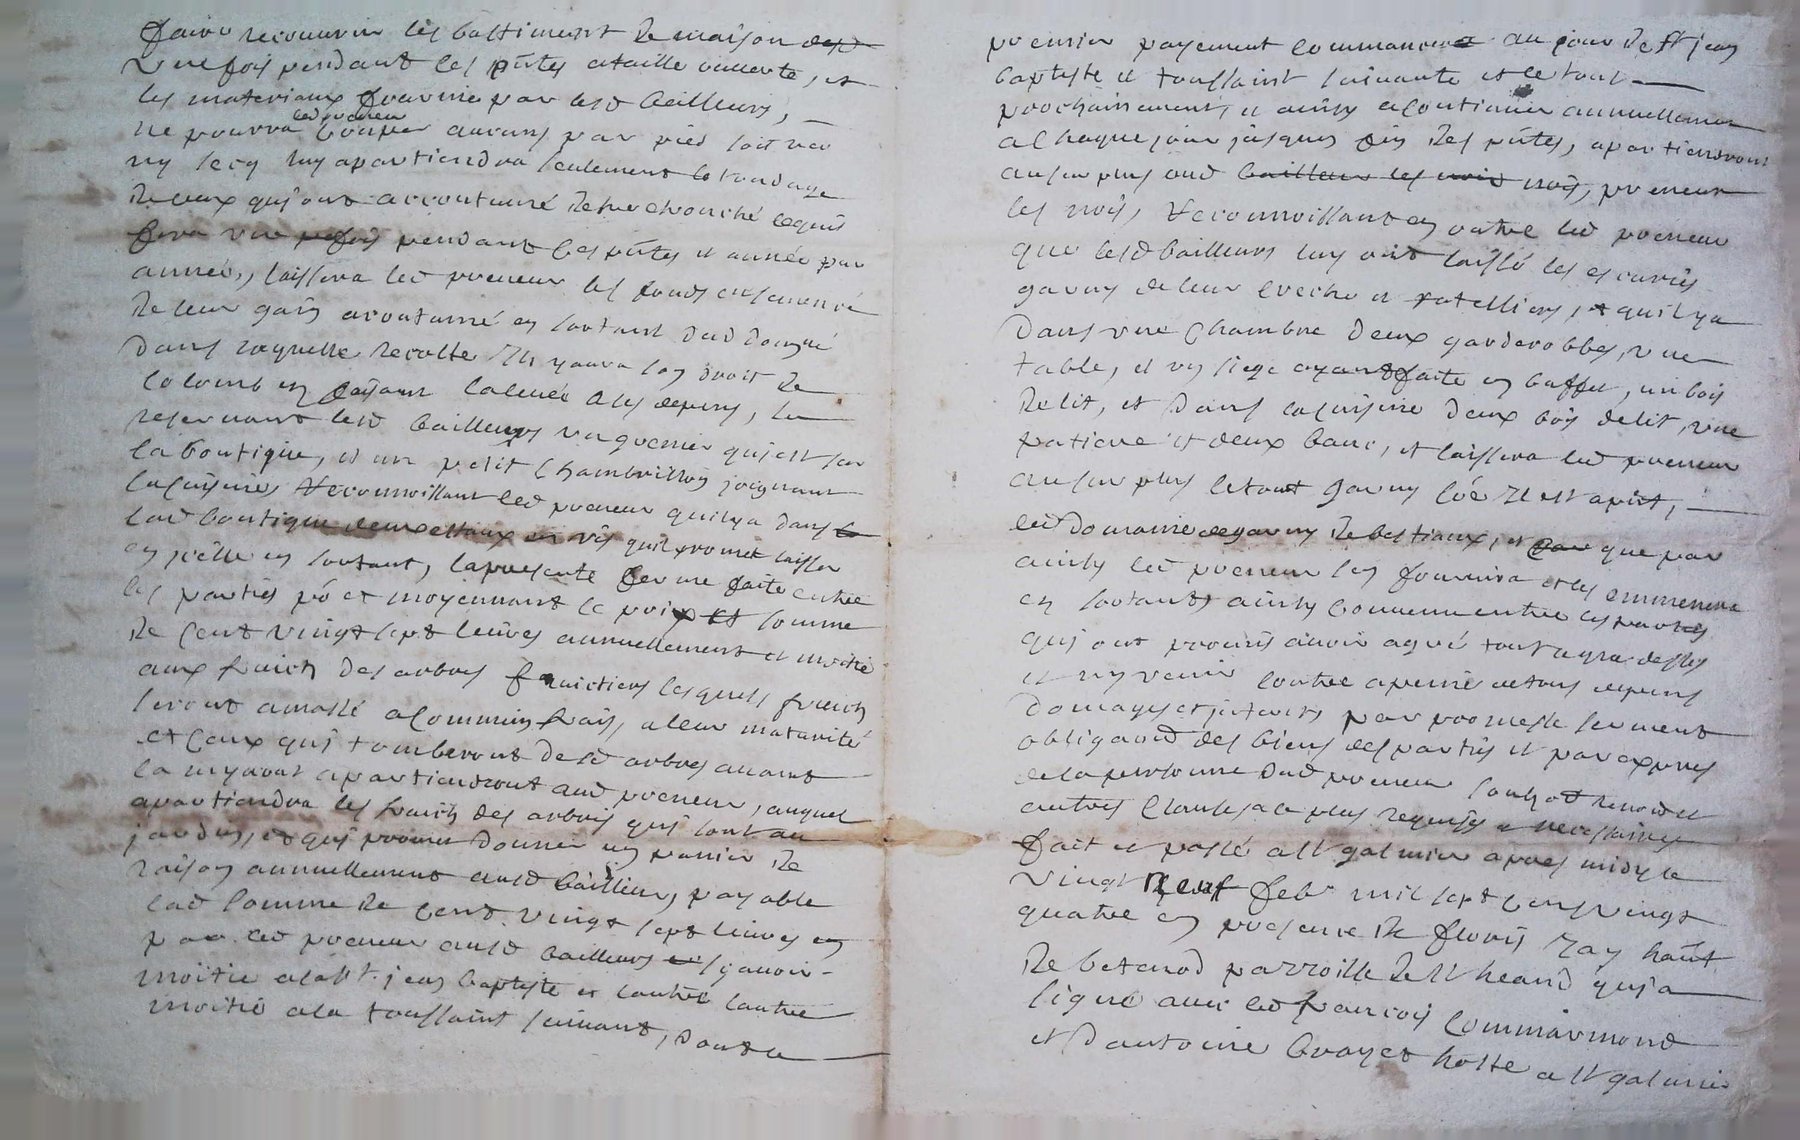 faire recouvrir les bastiment de maison
une fois pendant les prñtes ataille ouverte, et
les materiaux fournie par lesd bailleurs,
led preneur
ne pourra couper aucuns par pied soit ver
ny secq luy apartiendra seulement le tondage
de ceux qui ont accoutumé detre ebronché lequel
sera une fois pendant les prñtes et année par
année, laissera led preneur les fonds ensemencé
de leur gain acoutumé en sortant dud domgné
dans laquelle recolte Il y aura son droit de
colomb en faisant la levée a ses depens, se
reservant lesd bailleurs un grenier qui est sur
la boutique, et un petit chambrillon joignant
la cuisine, Reconnoissant led preneur quil ya dans
lad boutique deux estaux en vis quil promet laisser
en icelle en sortant, la presente ferme faite entre
les parties pñt et moyennant le prix et somme
de cent vingt sept livres annuellement et moitié
aux fruich des arbres fruictiers lesquels fruich
seront amassé a commun frais, a leur maturité
et ceux qui tomberont desd arbres avant
la my aout apartiendront aud preneur, auquel
apartiendra les fruich des arbres qui sont au
jardin, et qui promet donner un panier de
raison annuellement ausd bailleur, payable
lad somme de cent vingt sept livres en
par led preneur ausd bailleurs sçavoir
moitié a la st. jean baptiste et lautre
moitié a la toussaint suivant, dont le
premier payement commancera au jour de st jean
baptiste et toussaint suivante et le tout
prochainement, et ainsy a continuer annuellement
a chaque jour jusques fin des prñtes, apartiendront
au surplus aud bailleur les noix, preneur
les nois, Reconnoissant en outre led preneur
que lesd bailleurs luy ont laissé les escuries
garny de leur creche et ratelliers, et quil ya
dans une chambre deux garderobbes, une
table, et un siege ayant faite en buffet, un bois
de lit, et dans la cuisine deux bois de lit, une
patiere et deux banc, et laissera led preneur
au surplus le tout garny
led domaine degarny de bestiaux, et que par
ainsy led preneur les fournira et les emmenera
en sortant ainsy convenu entre les parties
qui ont promis avoir agré tout ce que dessus
et ny venir contre a peine de tous depens
domages et interets par promesse serment
obligaõn des biens des parties et par expres
de la personne dud preneur soubz et renonc et
autres clauses a ce plus requises et necessaires
fait et passé a st galmier apres midy le
vingt neuf febr mil sept cens vingt
quatre en presence de floris Ray haut
de betenod parroisse de st heand qui a
signé avec led francois commarmond
et dantoine brayet hoste a st galmier